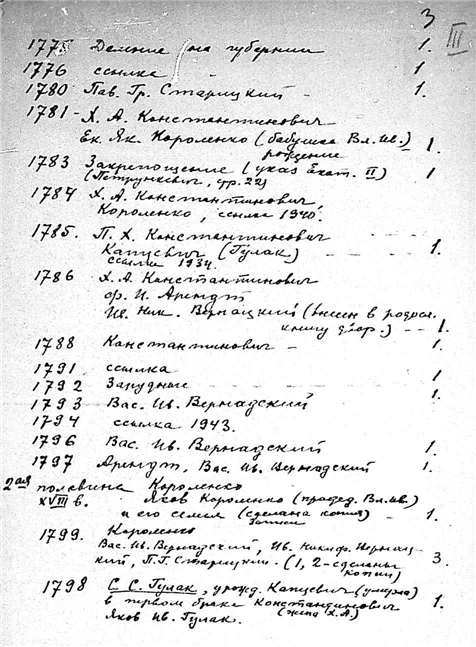 3
III
1775 Деление на губернии 1.
1776 ссылка - 1
1780 Пав. Гр. Старицкий - 1.
1781 - Х. А. Константинович
Ек. Як. Короленко (бабушка Вл. Ив.) 1.
рождение
1783 Закрепощение (указ Екат. II) 1
(Петрункевич, стр. 22)
1784 Х. А. Константинович,
Короленко, ссылка 1940.
1785. П. Х. Константинович
Капцевич (Гулак) - 1.
ссылка 1934.
1786 Х. А. Константинович
ор. И. Арендт
Ив. Ник. Вернацкий (внесен в родосл.
книгу двор.) -- 1.
1788 Константинович - 1.
1791 ссылка 1
1792 Зарудные 1.
1793 Вас. Ив. Вернадский
1794 ссылка 1943.
1796 Вас. Ив. Вернадский 1.
1797 Арендт, Вас. Ив. Вернадский 1.
2ая половина Короленко
XVIII в. Яков Короленко (прадед. Вл. Ив.)
и его семья (сделана копия) - 1.
записи
1799. Короленко
Вас. Ив. Вернадский, Ив. Никиф. Вернац-
кий, П. Г. Старицкий. (1, 2 - сделаны 3.
копии)
1798 С. С. Гулак, урожд. Капцевич (умерла)
в первом браке Константинович 1.
(жена Х. А.)
Яков Ив. Гулак.